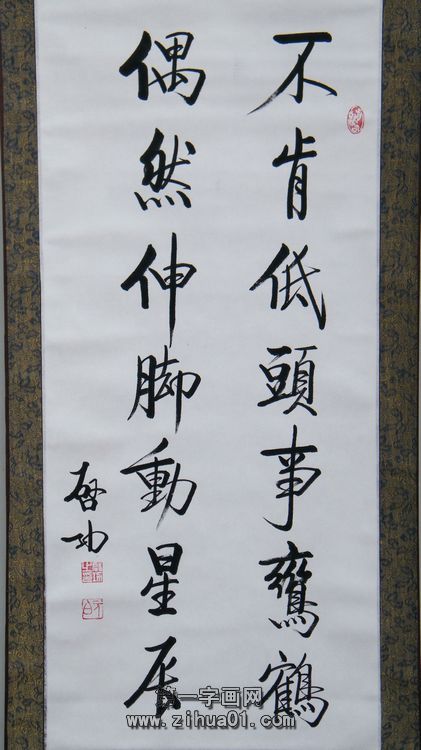 不肯低頭事鸞鶴
偶然伸脚動星辰
启功
第一字画网
www.zihua01.com